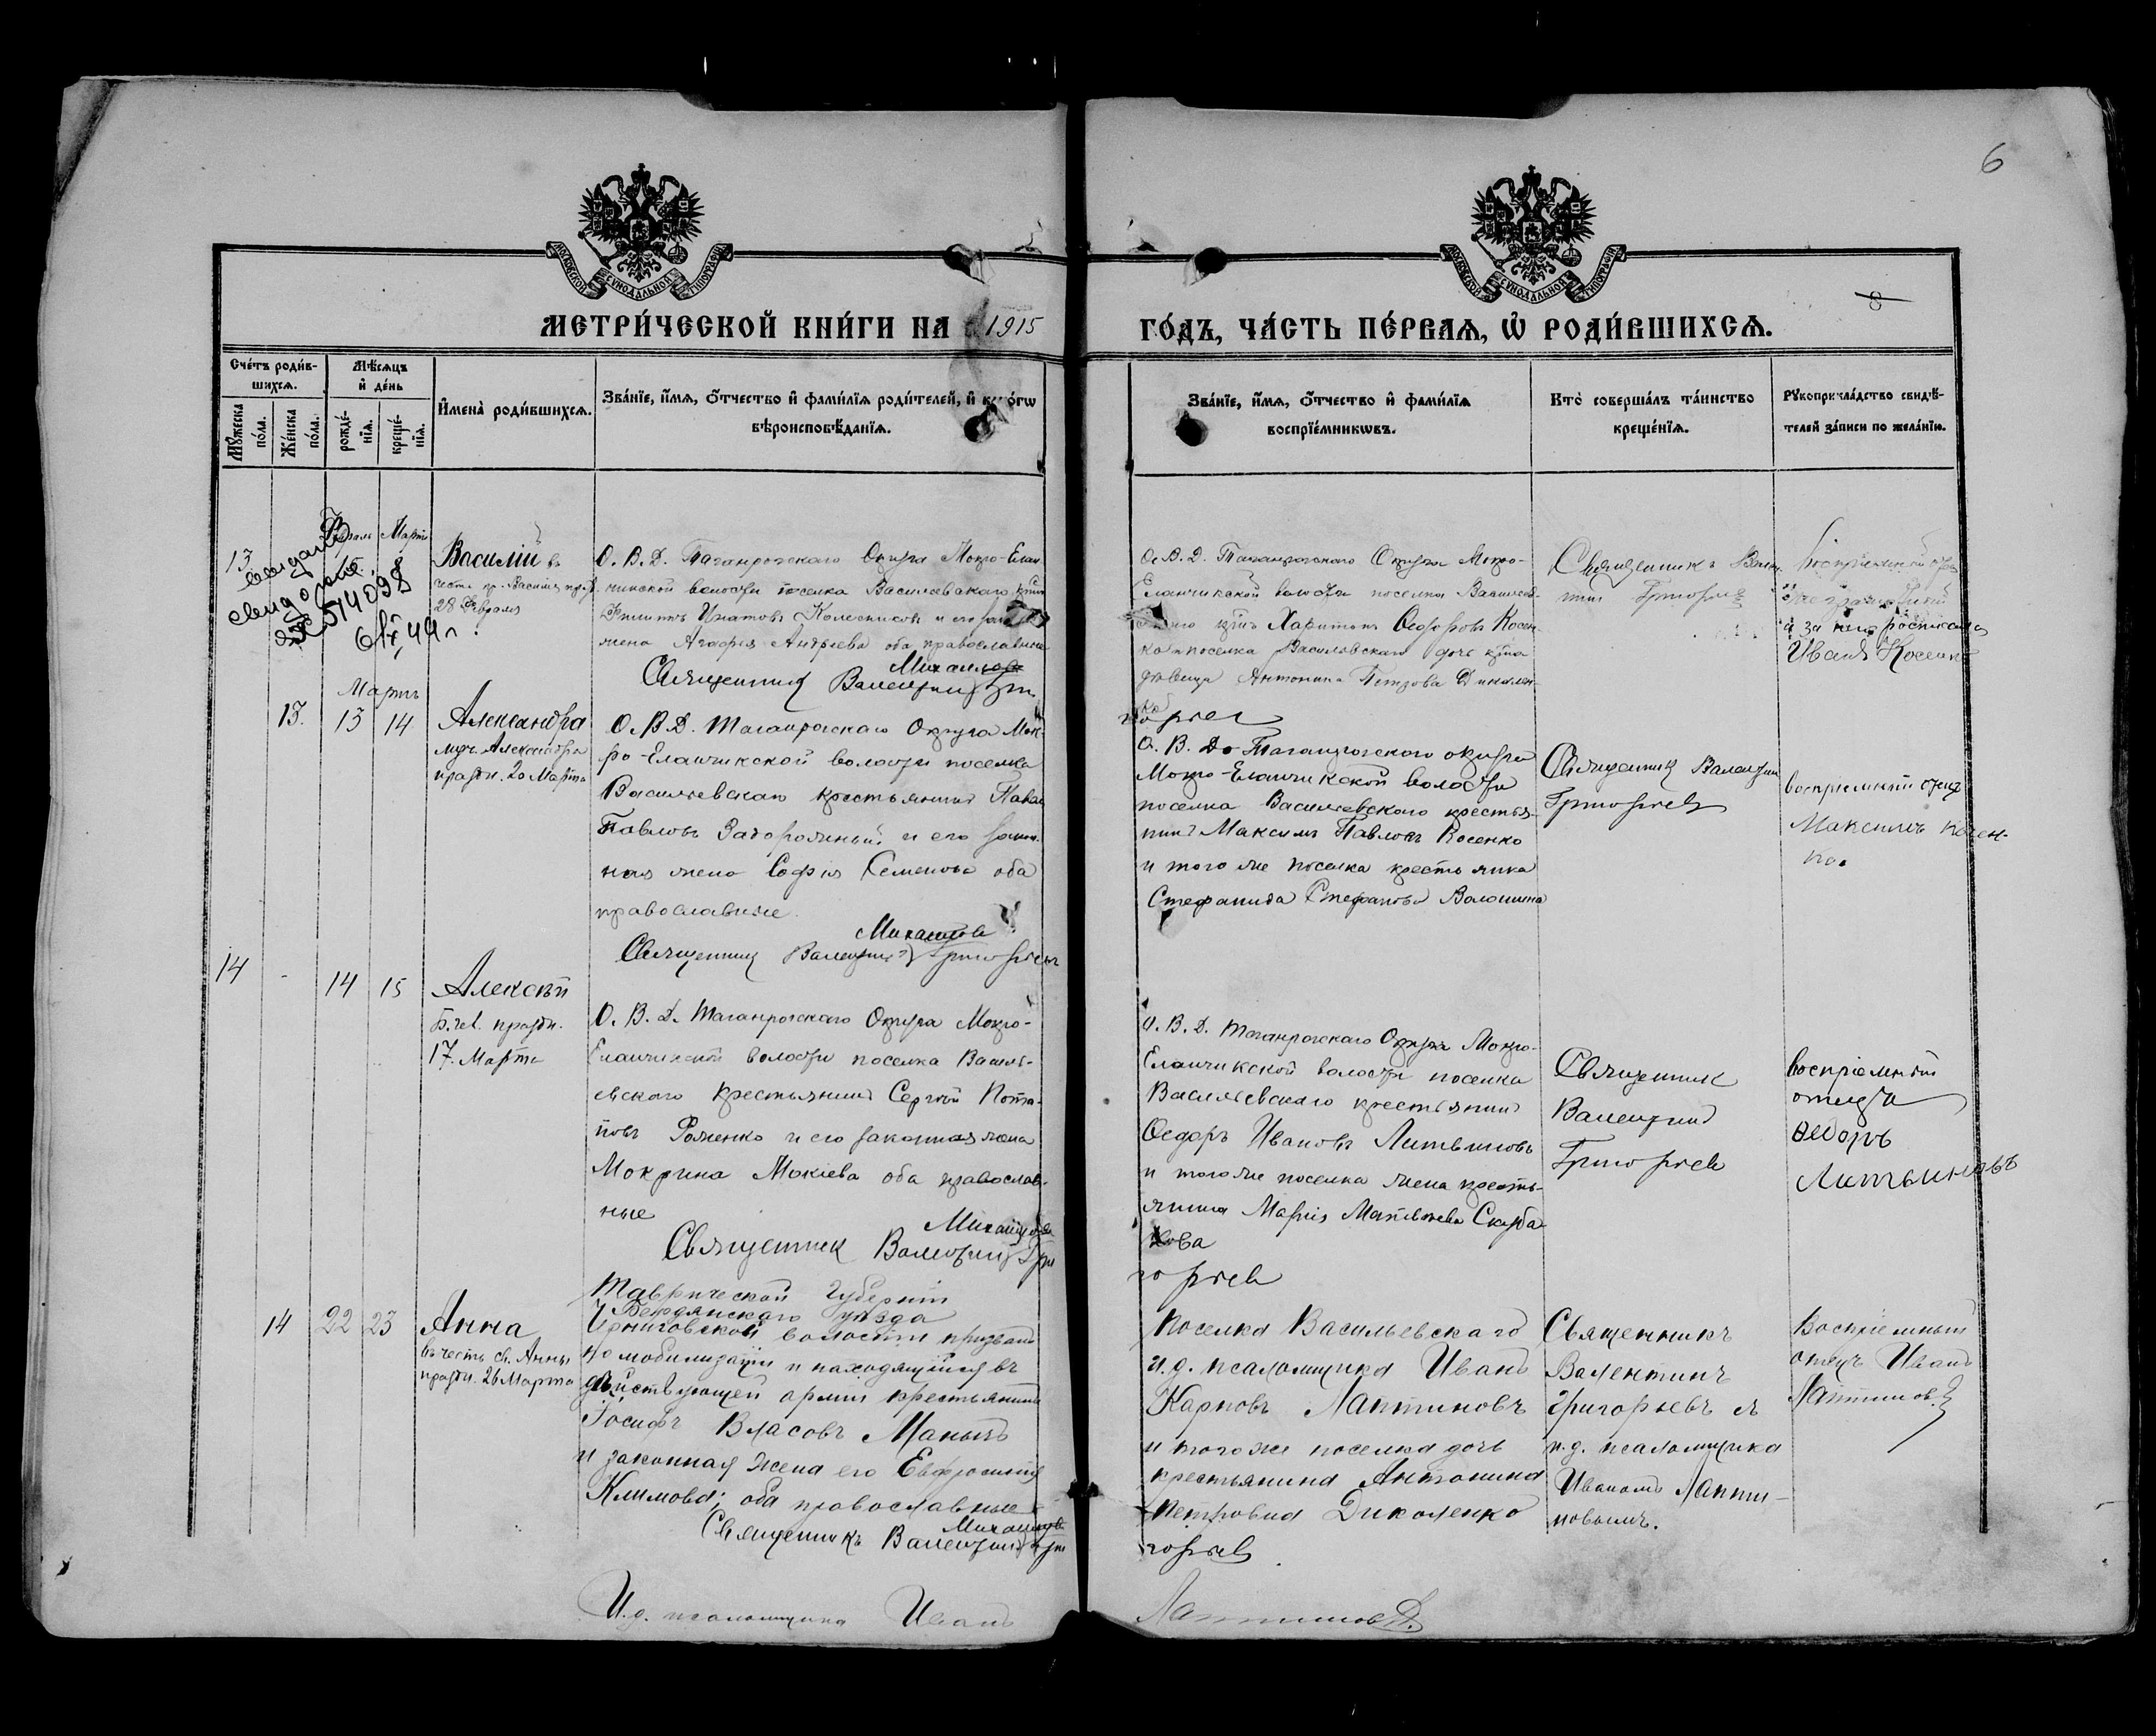 6
МОСКОВСКОЙ СУНОДАЛЬНОЙ ТИПОГРАФІИ
МОСКОВСКОЙ СУНОДАЛЬНОЙ ТИПОГРАФІИ
8
МЕТРИ́ЧЕСКОЙ КНИ́ГИ НА 1915
ГО́ДЪ, ЧА́СТЬ ПЕ́РВАѦ, Ѡ҆ РОДИ́ВШИХСѦ.
Сче́тъ роди́в-
шихсѧ.
Мѣ́сѧцъ
и҆ де́нь
Мꙋ́жеска
по́ла.
Же́нска
по́ла.
рожде́-
нїѧ.
креще́-
нїѧ.
И҆мена̀ роди́вшихсѧ.
Зва́нїе, и҆́мѧ, ѻ҆́тчество и҆ фамѝлїѧ роди́телей, и҆ ко́гѡ
вѣроисповѣ́данїѧ.
Зва́нїе, и҆́мѧ, ѻ҆́тчество и҆ фамѝлїѧ
воспрїе́мникѡвъ.
Кто̀ соверша́лъ та́инство
креще́нїѧ.
Рꙋкоприкла́дство свидѣ́-
телей за́писи по жела́нїю.
13
Мартъ
15. 8
514098
44 г
Василій въ
28 Февраля
О. В. Д. Таганрогскаго Округа Мокро-Елан
чикской волости поселка Васильевскаго
Филиппъ Игнатовъ Колесниковъ и его
жена Агафія Андреева оба православные
Михайлов
Священникъ Валентинъ Гри
О. В. Д. Таганрогскаго Округа Мокро-
Еланчикской волости поселка Васильев
Харитонъ Ѳедоровъ Косен
ко и поселка Васильевскаго дочь
девица Антонина Петрова Диколен
ко
горьев
Священникъ Вален
тинъ Григорьев
Воспріемный
неграмотный
а за него росписался
Иванъ Косенко
Мартъ
13. 13 14
Александра
муч. Александра
праздн. 20 Марта
О. В. Д. Таганрогскаго Округа Мок
ро-Еланчикской волости поселка
Васильевскаго крестьянинъ Павел
Павловъ Задорожный и его закон.
ная жена Софія Семенова оба
православные.
Михайлов
Священникъ Валентинъ Григорьев
О. В. Д. Таганрогскаго округа
Мокро-Еланчикской волости
поселка Васильевскаго крестья-
нинъ Максимъ Павловъ Косенко
и того же поселка крестьянка
Стефанида Стефанова Волошина
Священникъ Валентин
Григорьев
воспріемный отецъ
Максимъ Косен-
ко.
14 - 14 15
Алексѣй
Б. чел. праздн.
17. Марта
О. В. Д. Таганрогскаго Округа Мокро-
Еланчикской волости поселка Василь-
евскаго крестьянинъ Сергѣй Пота-
повъ Роменко и его законная жена
Мокрина Мокіева оба православ-
ные
Михайлов
Священник Валентинъ Гри
горьев
О. В. Д. Таганрогскаго Округа Мокро-
Еланчикской волости поселка
Васильевскаго крестьянинъ
Ѳедоръ Ивановъ Литвиновъ
и того же поселка жена кресть-
янина Марія Матвѣева Скорба
кова
Священник
Валентинъ
Григорьев
воспріемный
отецъ
Ѳедоръ
Литвиновъ
14 22 23
Анна
въ честь св. Анны
праздн. 26 Марта
Таврической Губерніи
Бердянскаго уѣзда
Черниговской волости призван
по мобилизаціи и находящійся въ
дѣйствующей арміи крестьянинъ
Іосифъ Власовъ Манычъ
и законная жена его Евфросинія
Климова; оба православные
Михайлов
Священникъ Валентинъ Гри
горьев
Поселка Васильевскаго
и. д. псаломщика Иванъ
Карповъ Лаптиновъ
и того же поселка дочь
крестьянина Антонина
Петровна Диколенко
Священникъ
Валентинъ
Григорьевъ съ
и. д. псаломщика
Иваномъ Лапти-
новымъ.
Воспріемный
отецъ Иванъ
Лаптиновъ
И. д. псаломщика Иванъ
Лаптиновъ.